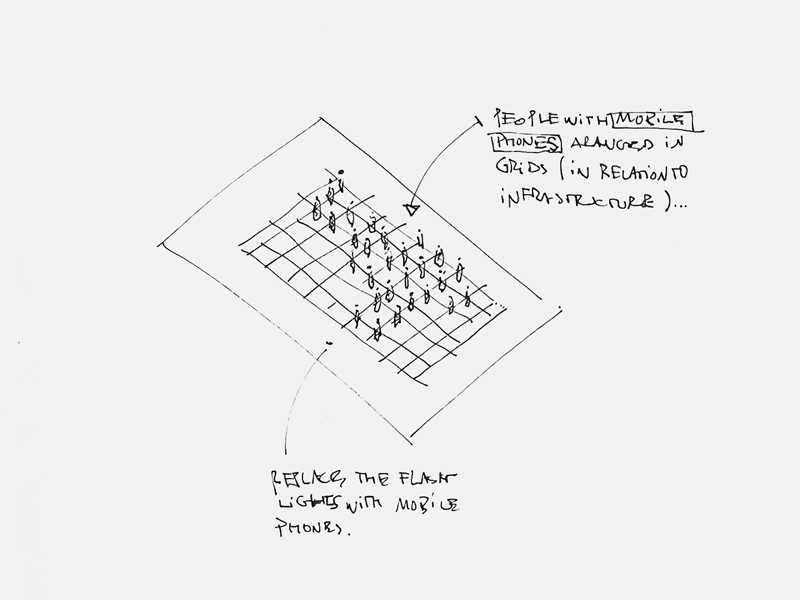 PEOPLE WITH MOBILE
PHONES ARANGED IN
GRIDS (IN RELATION TO
INFRASTRUCTURE)...
REPLACE THE FLASH
LIGHTS WITH MOBILE
PHONES.